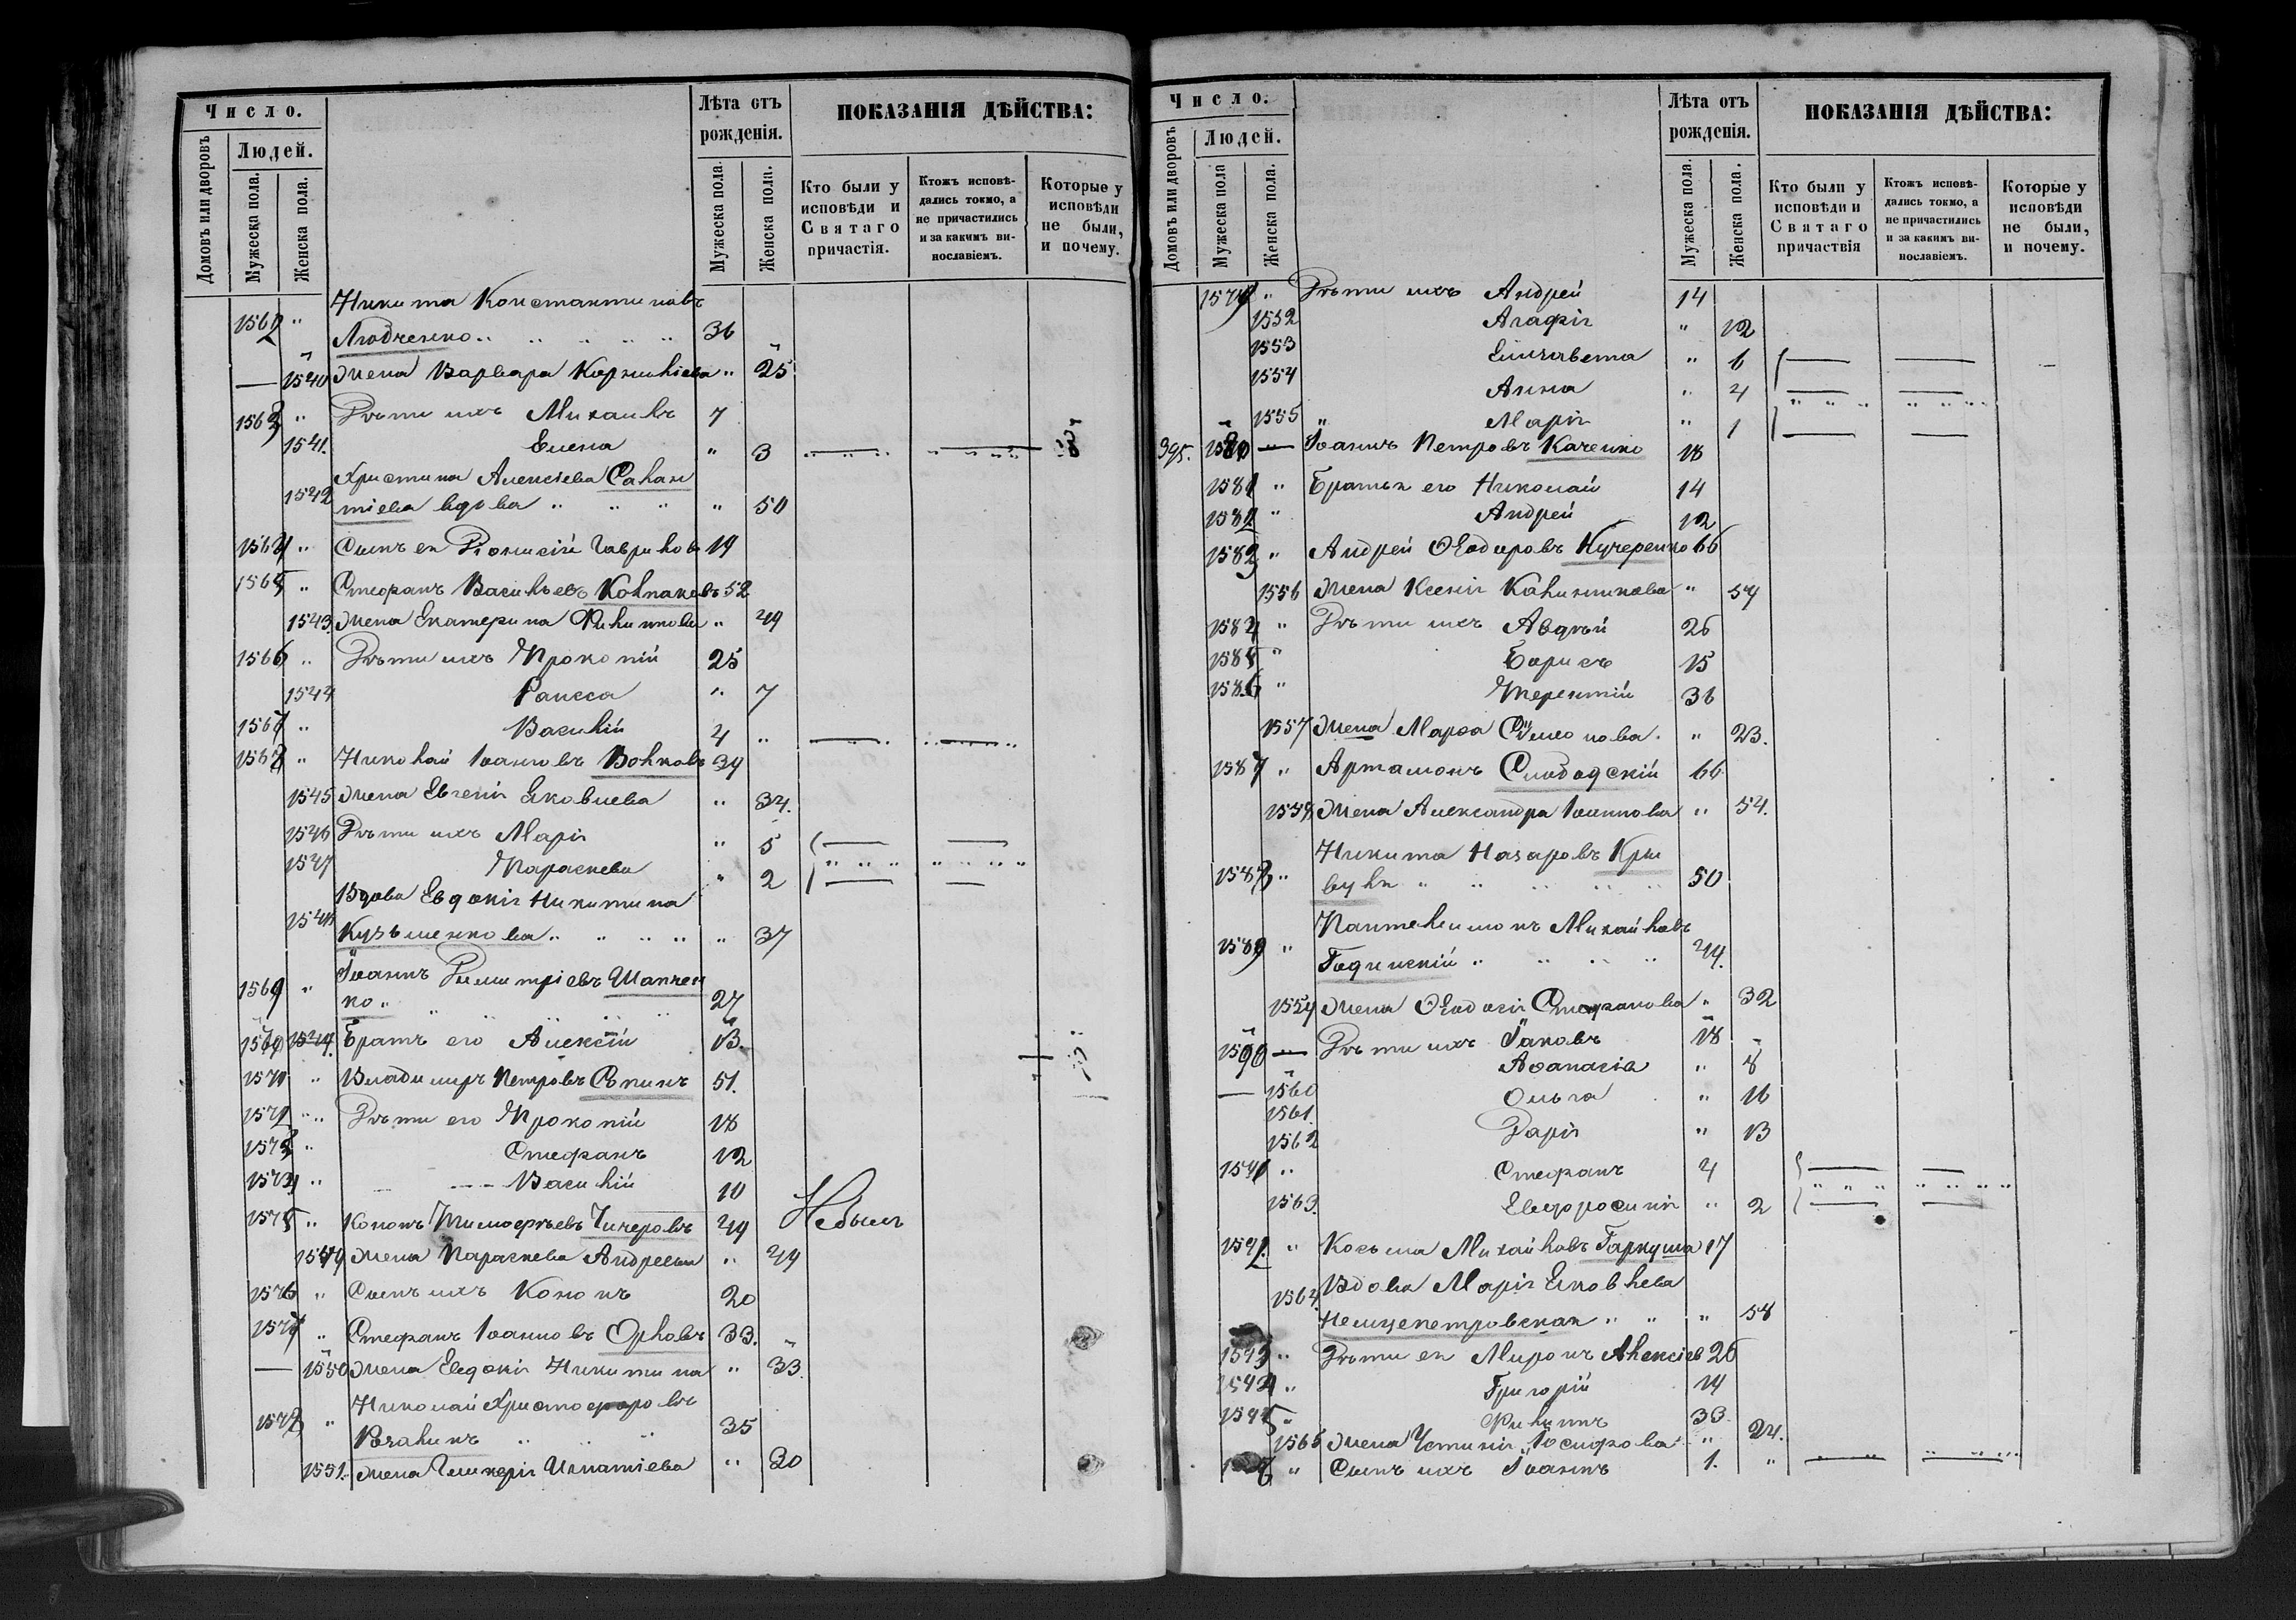 Число.
Лѣта отъ рожденія.
ПОКАЗАНІЯ ДѢЙСТВА:
Домовъ или дворовъ
Людей.
Мужеска пола.
Женска пола.
Мужеска пола.
Женска пола.
Кто были у исповѣди и Святаго причастія.
Ктожъ исповѣ-
дались токмо, а
не причастились
и за какимъ ви-
нославіемъ.
Которые у
исповѣди
не были,
и почему.
Никита Константиновъ
1562 " Любченко 36
1540 Жена Варвара Корнилiева " 25
1563 " Дѣти ихъ Михаилъ 7
1541. Елена " 3
Христина Алексiева
1542 вдова " 50
1564 " Сынъ ея Дiонисiй 19
1565 " Стефанъ Васильевъ Колпаковъ 52
1543. Жена Екатерина " 49
1566 " Дѣти ихъ Прокопiй 25
1544 Раисса " 7
1567 " Василiй 4 "
1568 " Николай Iоанновъ Волковъ 34
1545 Жена Евгенiя Яковлева " 34.
1546 Дѣти ихъ Марiя " 5
1547 Параскева " 2
Вдова Евдокiя Никитина
1548 Кузьменкова " 37
Iоаннъ Димитрiевъ Шапчен
1569 " ко 27
1570 Братъ его Алексiй 13.
1571 " Владимиръ Петровъ 51.
1572 " Дѣти его Прокопiй 18
1573 " Стефанъ 12
1574 " Василiй 10
1575 " Кононъ Тимофѣевъ Чичеровъ 49 Небылъ
1549 Жена Параскева Андреева " 49
1576 " Сынъ ихъ Кононъ 20
1577 " Стефанъ Iоанновъ Орловъ 33.
1550 Жена Евдокiя Никитина " 33.
Николай Христофоровъ
1578 " 35
1551. Жена Гликерiя Игнатiева " 30
Число.
Лѣта отъ рожденія.
ПОКАЗАНІЯ ДѢЙСТВА:
Домовъ или дворовъ
Людей.
Мужеска пола
Женска пола.
Мужеска пола.
Женска пола.
Кто были у исповѣди и Святаго причаствія
Ктожъ исповѣ-
дались токмо, а
не причастились
и за какимъ ви-
нославіемъ.
Которые у
исповѣди
не были,
и почему.
1579 " Дѣти ихъ Андрей 14
1552 Агафiя " 12
1553 Елисавета " 6
1554 Анна " 4
1555 Марiя " 1
395. 1580 — Iоаннъ Петровъ Каченко 18
1581 " Братья его Николай 14
1582 " Андрей 12
1583 " Андрей Ѳеодоровъ Кучеренко 66
1556 Жена Ксенiя Калинникова " 54
1584 " Дѣти ихъ Авдѣй 26
1585 " Борисъ 15
1586 " Терентiй 36
1557 Жена Марѳа Симеонова. " 23.
1587 " Артамонъ Слободскiй 66
1558 Жена Александра Iоаннова " 54.
Никита Назаровъ Кри
1588 " вуля 50
Пантелеимонъ Михайловъ
1589 " Годинскiй 44.
1559 Жена Ѳеодосiя Стефанова " 32
1590 — Дѣти ихъ Iаковъ 18
Аѳанасiя " 8
— 1560 Ольга " 16
1561.
1562 Дарiя " 13
1591 " Стефанъ 4
1563. Евфросинiя " 2
1592. " Косьма Михайловъ Гаркуша 17
Вдова Марiя Яковлева
1564. " 58
1593 " Дѣти ея Миронъ Алексiев 26
1594 " Григорiй 14
1595 " Филиппъ 33
1565 Жена Устинiя Iосифова " 24.
" Сынъ ихъ Iоаннъ 1. "